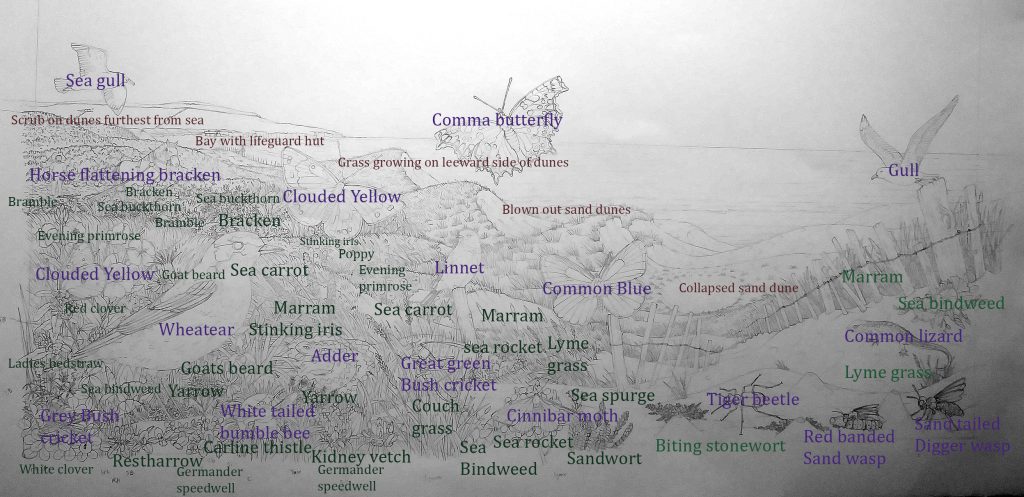 Sea gull
Comma butterfly
Scrub on dunes furthest from sea
Bay with lifeguard hut
Grass growing on leeward side of dunes
Gull
Horse flattening bracken
Bracken
Sea buckthorn
Clouded Yellow
Bramble
Sea buckthorn
Blown out sand dunes
Bramble
Bracken
Evening primrose
Stinking iris
Poppy
Clouded Yellow
Goat beard
Sea carrot
Evening
primrose
Linnet
Common Blue
Collapsed sand dune
Marram
Red clover
Marram
Sea carrot
Marram
Sea bindweed
Wheatear
Stinking iris
Common lizard
Adder
sea rocket
Lyme
grass
Ladies bedstraw
Goats beard
Great green
Bush cricket
Lyme grass
Sea bindweed
Yarrow
Yarrow
Sea spurge
Tiger beetle
Grey Bush
cricket
White tailed
bumble bee
Couch
grass
Cinnibar moth
Sand tailed
Digger wasp
Carline thistle
Sea
Bindweed
Sea rocket
Biting stonewort
Red banded
Sand wasp
White clover
Restharrow
Kidney vetch
Sandwort
Germander
speedwell
Germander
speedwell